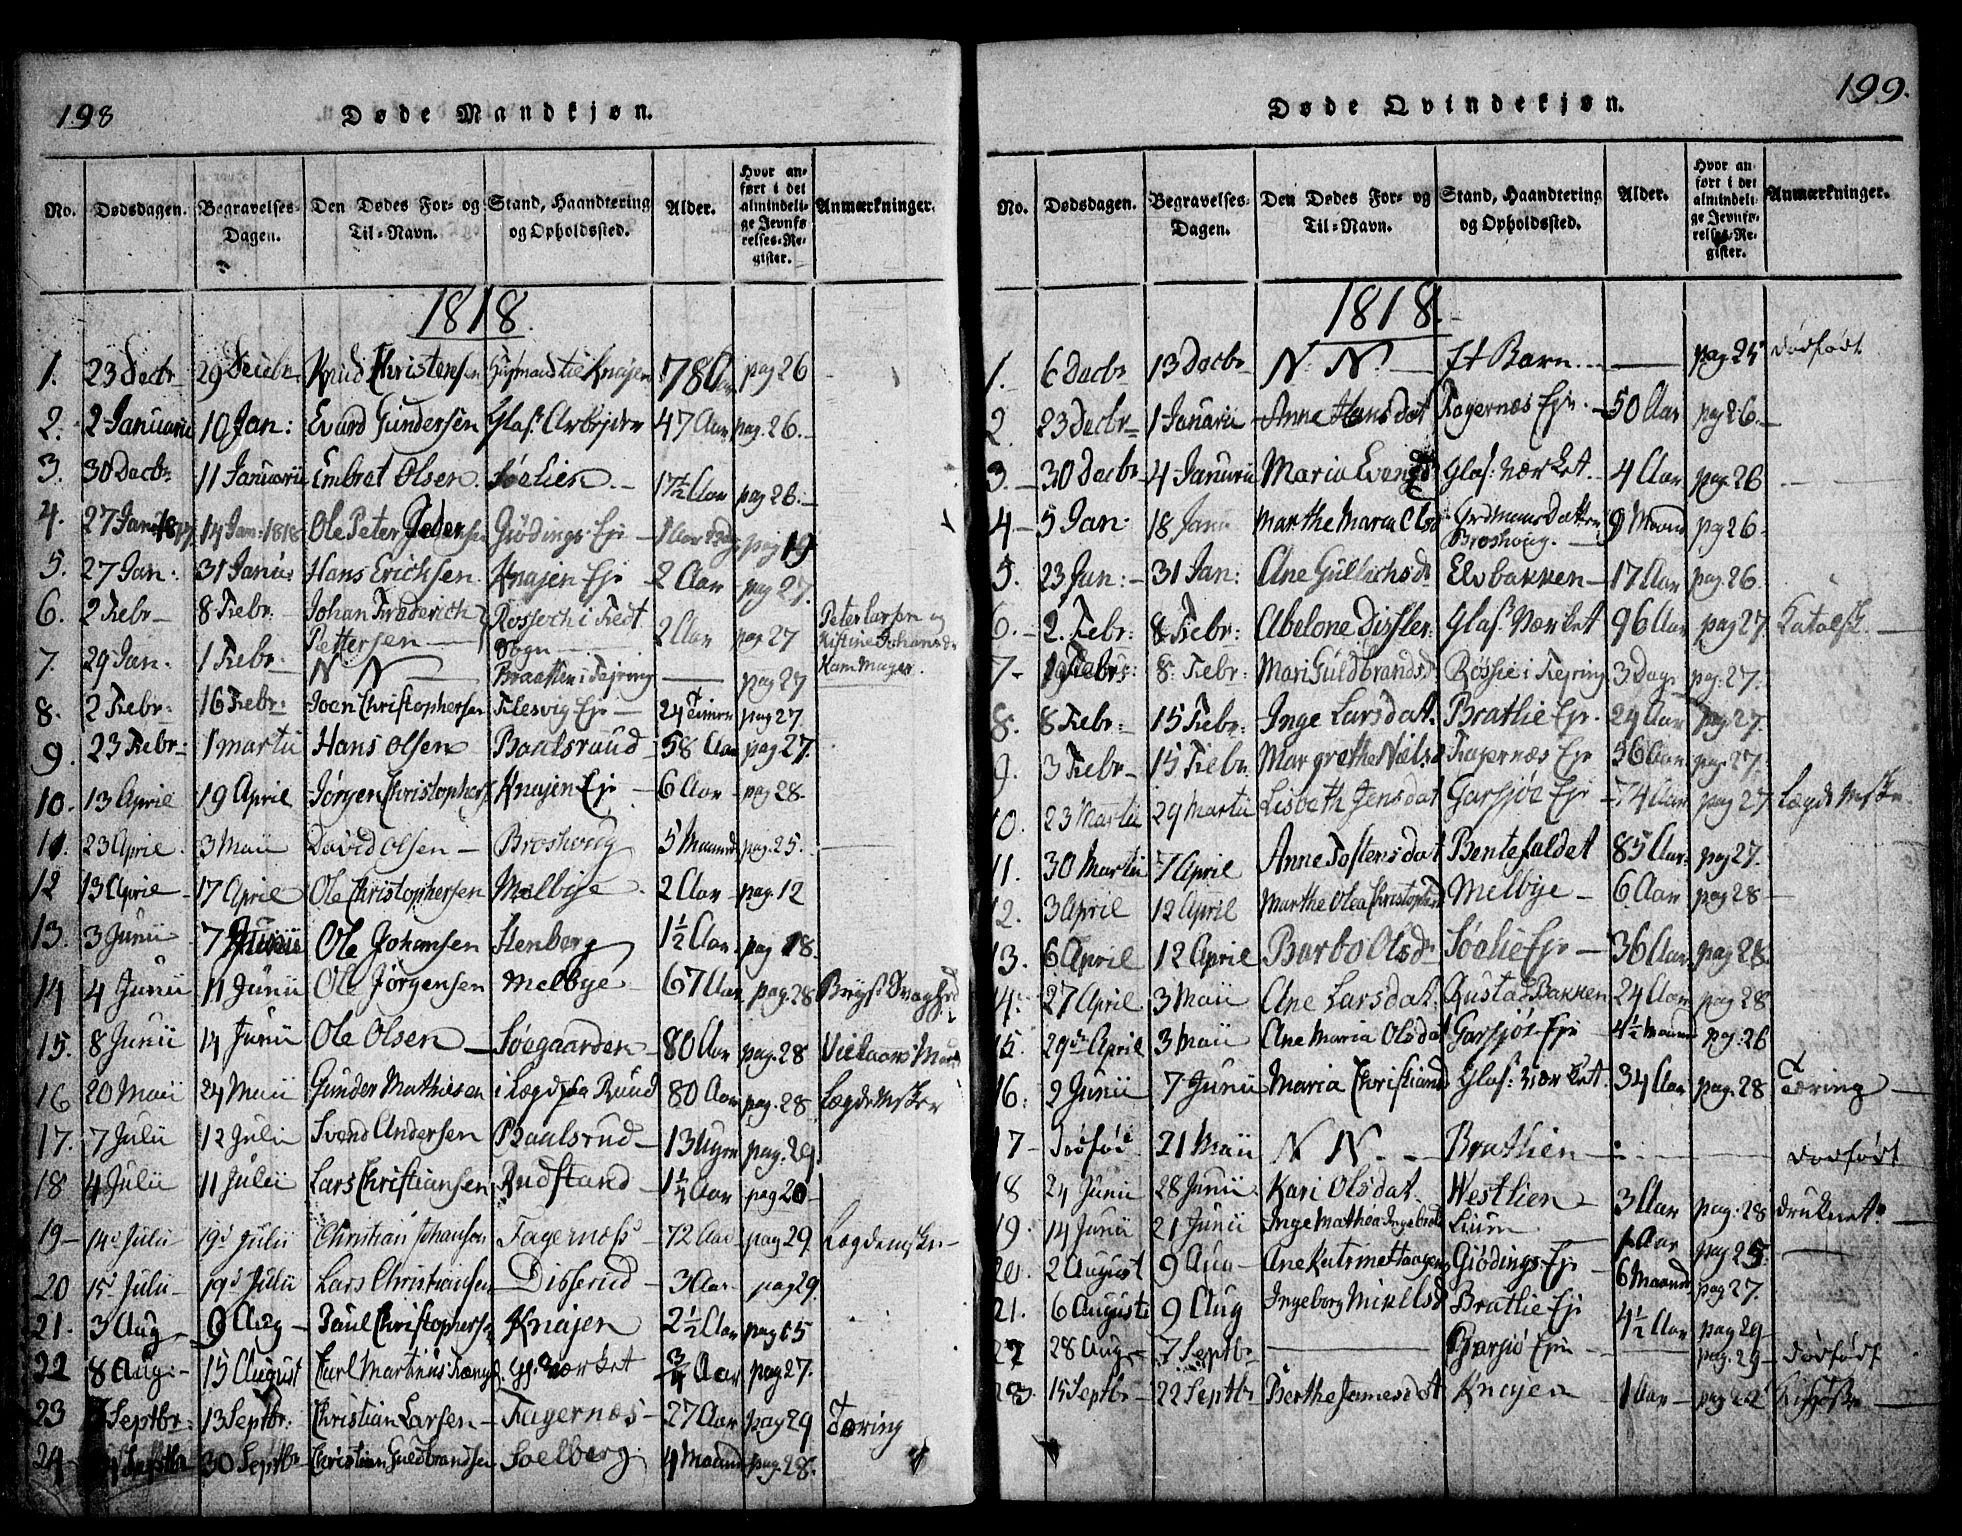 198
Døde Mandkjøn.
No. Dødsdagen. Begravelses-Dagen. Den Dødes For- og Til-Navn. Stand, Haandtering og Opholdssted. Alder. Hvor anført i det almindelige Jevnførelses-Register. Anmærkninger.
1818.
1. 23 Decbr 29 Decbr Knud Christensen Knajen 78 Aar pag 26
2. 2 Januarii 19 Jan: Evard Gundersen Glas: Arbejder 47 Aar pag. 26.
3. 30 Decbr 11 Januarii Embret Olsen Søelien 17½ Aar pag 26.
4. 27 Jan 1817 14 Jan: 1818 Ole Peter Pedersen Grødings Eje 1 Aar pag 19
5. 27 Jan: 31 Janu: Hans Ericksen Knajen Eje 2 Aar pag 27.
6. 2 Febr 8 Febr: Johan Frederich Pettersen i Fedt Sogn 2 Aar pag 27 Peter Larsen og Kistine Johansd.
7. 29 Jan. 1 Febr: N N Braatten i Fejring pag 27
8. 2 Febr: 16 Febr: Joen Christophersen Flesvig Eje 24 Timer pag 27.
9. 23 Febr: 1 Martii Hans Olsen Baulsruud 58 Aar pag 27.
10. 13 April 19 April Jørgen Christophers Knajen Eje 6 Aar pag 28.
11. 23 April. 3 Maii David Olsen Broshvug 5 Maaned pag. 25.
12 13 April 17 April Ole Christophersen Melbye 2 Aar pag. 12
13. 3 Junii 7 Junii Ole Johansen Stenberg 1½ Aar pag 18.
14 4 Junii 11 Junii Ole Jørgensen Melbye 67 Aar pag. 28 Bryst Svaghed
15. 8 Junii 14 Junii Ole Olsen Søegaarden 80 Aar pag. 28
16 20 Maii 24 Maii Gunder Mathiesen i Lægd paa Ruud 80 Aar pag. 28 Lægdemsker
17. 7 Julii 12 Julii Svend Andersen Baulsrud 13 Uger pag. 29
18 4 Julii 11 Julii Lars Christiansen Rudstand 1¼ Aar pag 20
19 14d Julii 19d Julii Christian Johansen Fagernæss 72 Aar pag 29. Lægdemske
20 15d Julii 19d Julii Lars Christiansen Disserud 3 Aar pag 29.
21. 3 Aug 9 Aug Paul Christophersen Knajen 2½ Aar pag 15
22 8 Aug: 15 August Carl Martinus Gl. Værket ¾ Aar pag 27.
23 Septbr: 13 Septbr: Christian Larsen Fagernæs 27 Aar pag 29 Tæring
24 Septbr 30 Septbr Christian Guldbrandsen Soelberg 4 Maaned pag. 28.
199.
Døde Qvindekjøn.
No. Dødsdagen. Begravelses-Dagen. Den Dødes For- og Til-Navn. Stand, Haandtering og Opholdssted. Alder. Hvor anført i det almindelige Jevnførelses-Register. Anmærkninger.
1818.
1. 6 Decbr 13 Decbr N. N. Et Barn pag. 25 dødfødt
2. 23 Decbr 1 Januarii Anne Hansdat Fagernæs Eje. 50 Aar pag 26.
3. 30 Decbr 4 Januarii Maria Evensd Glas: Værket 4 Aar pag. 26
4 5 Jan: 18 Janu Marthe Maria Olsd Broshvug. 9 Maaned pag 26
5. 23 Jan: 31 Jan: Ane Gullichsd Elvbakken 17 Aar pag 26.
6. 2. Febr: 8 Febr: Abelone Dissler. Glas: Værket 96 Aar pag 27 Katolsk.
7 Febr: 8. Febr: Mari Guldbrandsd Røssie i Fejring 3 Dage pag. 27.
8. 8 Febr: 15 Febr: Inge Larsdat. Bratlie Eje. 24 Aar pag 27.
9. 3 Febr 15 Febr. Margrethe Nielsd Fagernæs Eje 56 Aar pag. 27.
10. 23 Martii 29 Martii Lisbeth Jensdat Garsjøe Eje 74 Aar pag 27 Lægdemske
11. 30 Martii 7 April Anne Tostensdat Bentefaldet 85 Aar. pag 27.
12. 3 April 12 April Marthe Olea Christophd Melbye 6 Aar pag 28
13. 6 April 12 April Barbo Olsd Søelie Eje 36 Aar pag 28.
14. 27 April 3 Maii Ane Larsdat. Rustad Bakken 24 Aar pag 28
15. 29de April 3 Maii Ane Maria Olsdat Garsjøe Eje 4½ Maaned pag. 26
16. 2 Junii 7 Junii Maria Christiansd Glas: Værket. 34 Aar pag. 28 Tæring
17 Dødfød 21 Maii N N. Brathien dødfødt
18 24 Junii 28 Junii Kari Olsdat. Westlien 3 Aar pag. 28 druknet
19. 14 Junii 21 Junii Inge Mathea Lium 1 Aar pag 25.
20. 2 August 9 Aug Ane Giødings Eje 6 Maaned pag 27.
21. 6 August 9 Aug Ingeborg Nielsd Bratlie Eje 4½ Aar pag 29
22 28 Aug 7 Septbr Garsjø Eje pag. 29 dødfødt
23 15 Septbr 22 Septbr Berthe Jamesdat Knajen 1 Aar pag 22